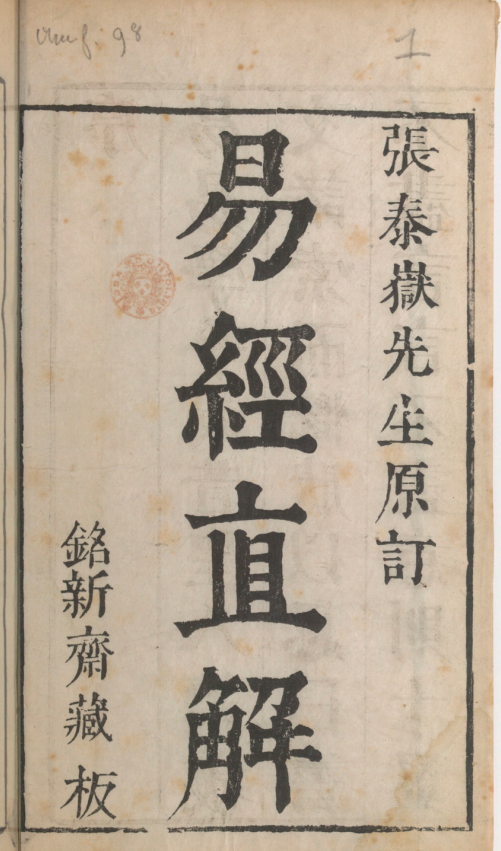 張泰嶽先生原訂
易經直解
銘新齋藏板
1